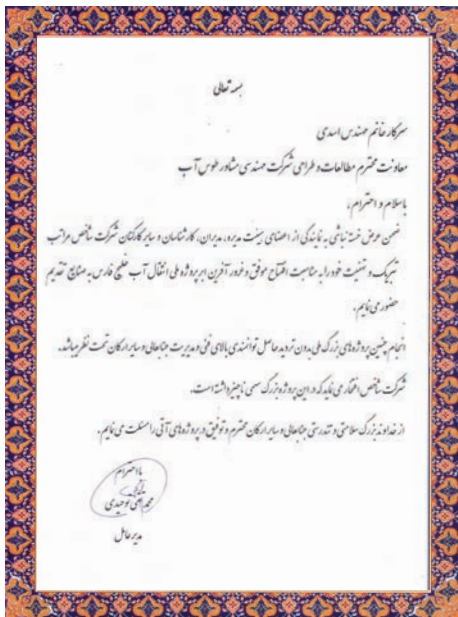 بسمه تعالی
سرکار خانم مهندس اسدی
معاونت محترم مطالعات و طراحی شرکت مهندسی مشاور طوس آب
با سلام و احترام،
ضمن عرض خسته نباشی به نمایندگی از اعضای هیئت مدیره، مدیران، کارشناسان و سایر کارکنان شرکت شاخص مراتب
تبریک و تهنیت خود را به مناسبت افتتاح موفق و غرور آفرین ابر پروژه ملی انتقال آب خلیج فارس به صنایع تقدیم
حضور می نمایم.
انجام چنین پروژه های بزرگ ملی بدون تردید حاصل توانمندی بالای فنی و مدیریت جنابعالی و سایر ارکان تحت نظر میباشد.
شرکت شاخص افتخار می نماید که در این پروژه بزرگ سهمی ناچیز داشته است.
از خداوند بزرگ سلامتی و تندرستی جنابعالی و سایر ارکان محترم و توفیق در پروژه های آتی را مسئلت می نمایم.
با احترام
توحیدی
مدیر عامل